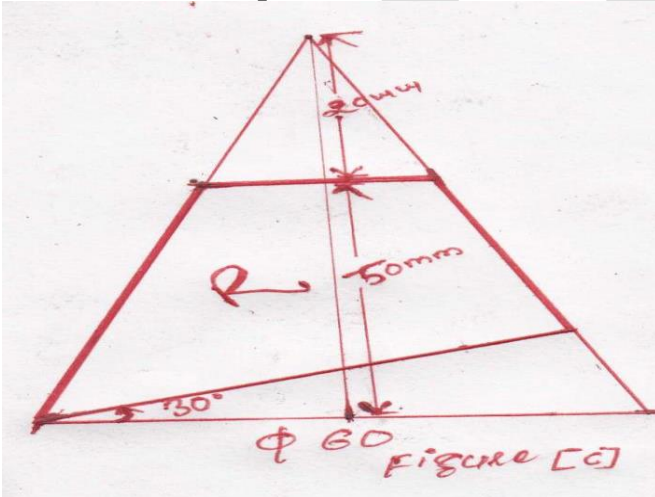 20mm
50mm
R
30°
Φ 60
Figure [C]